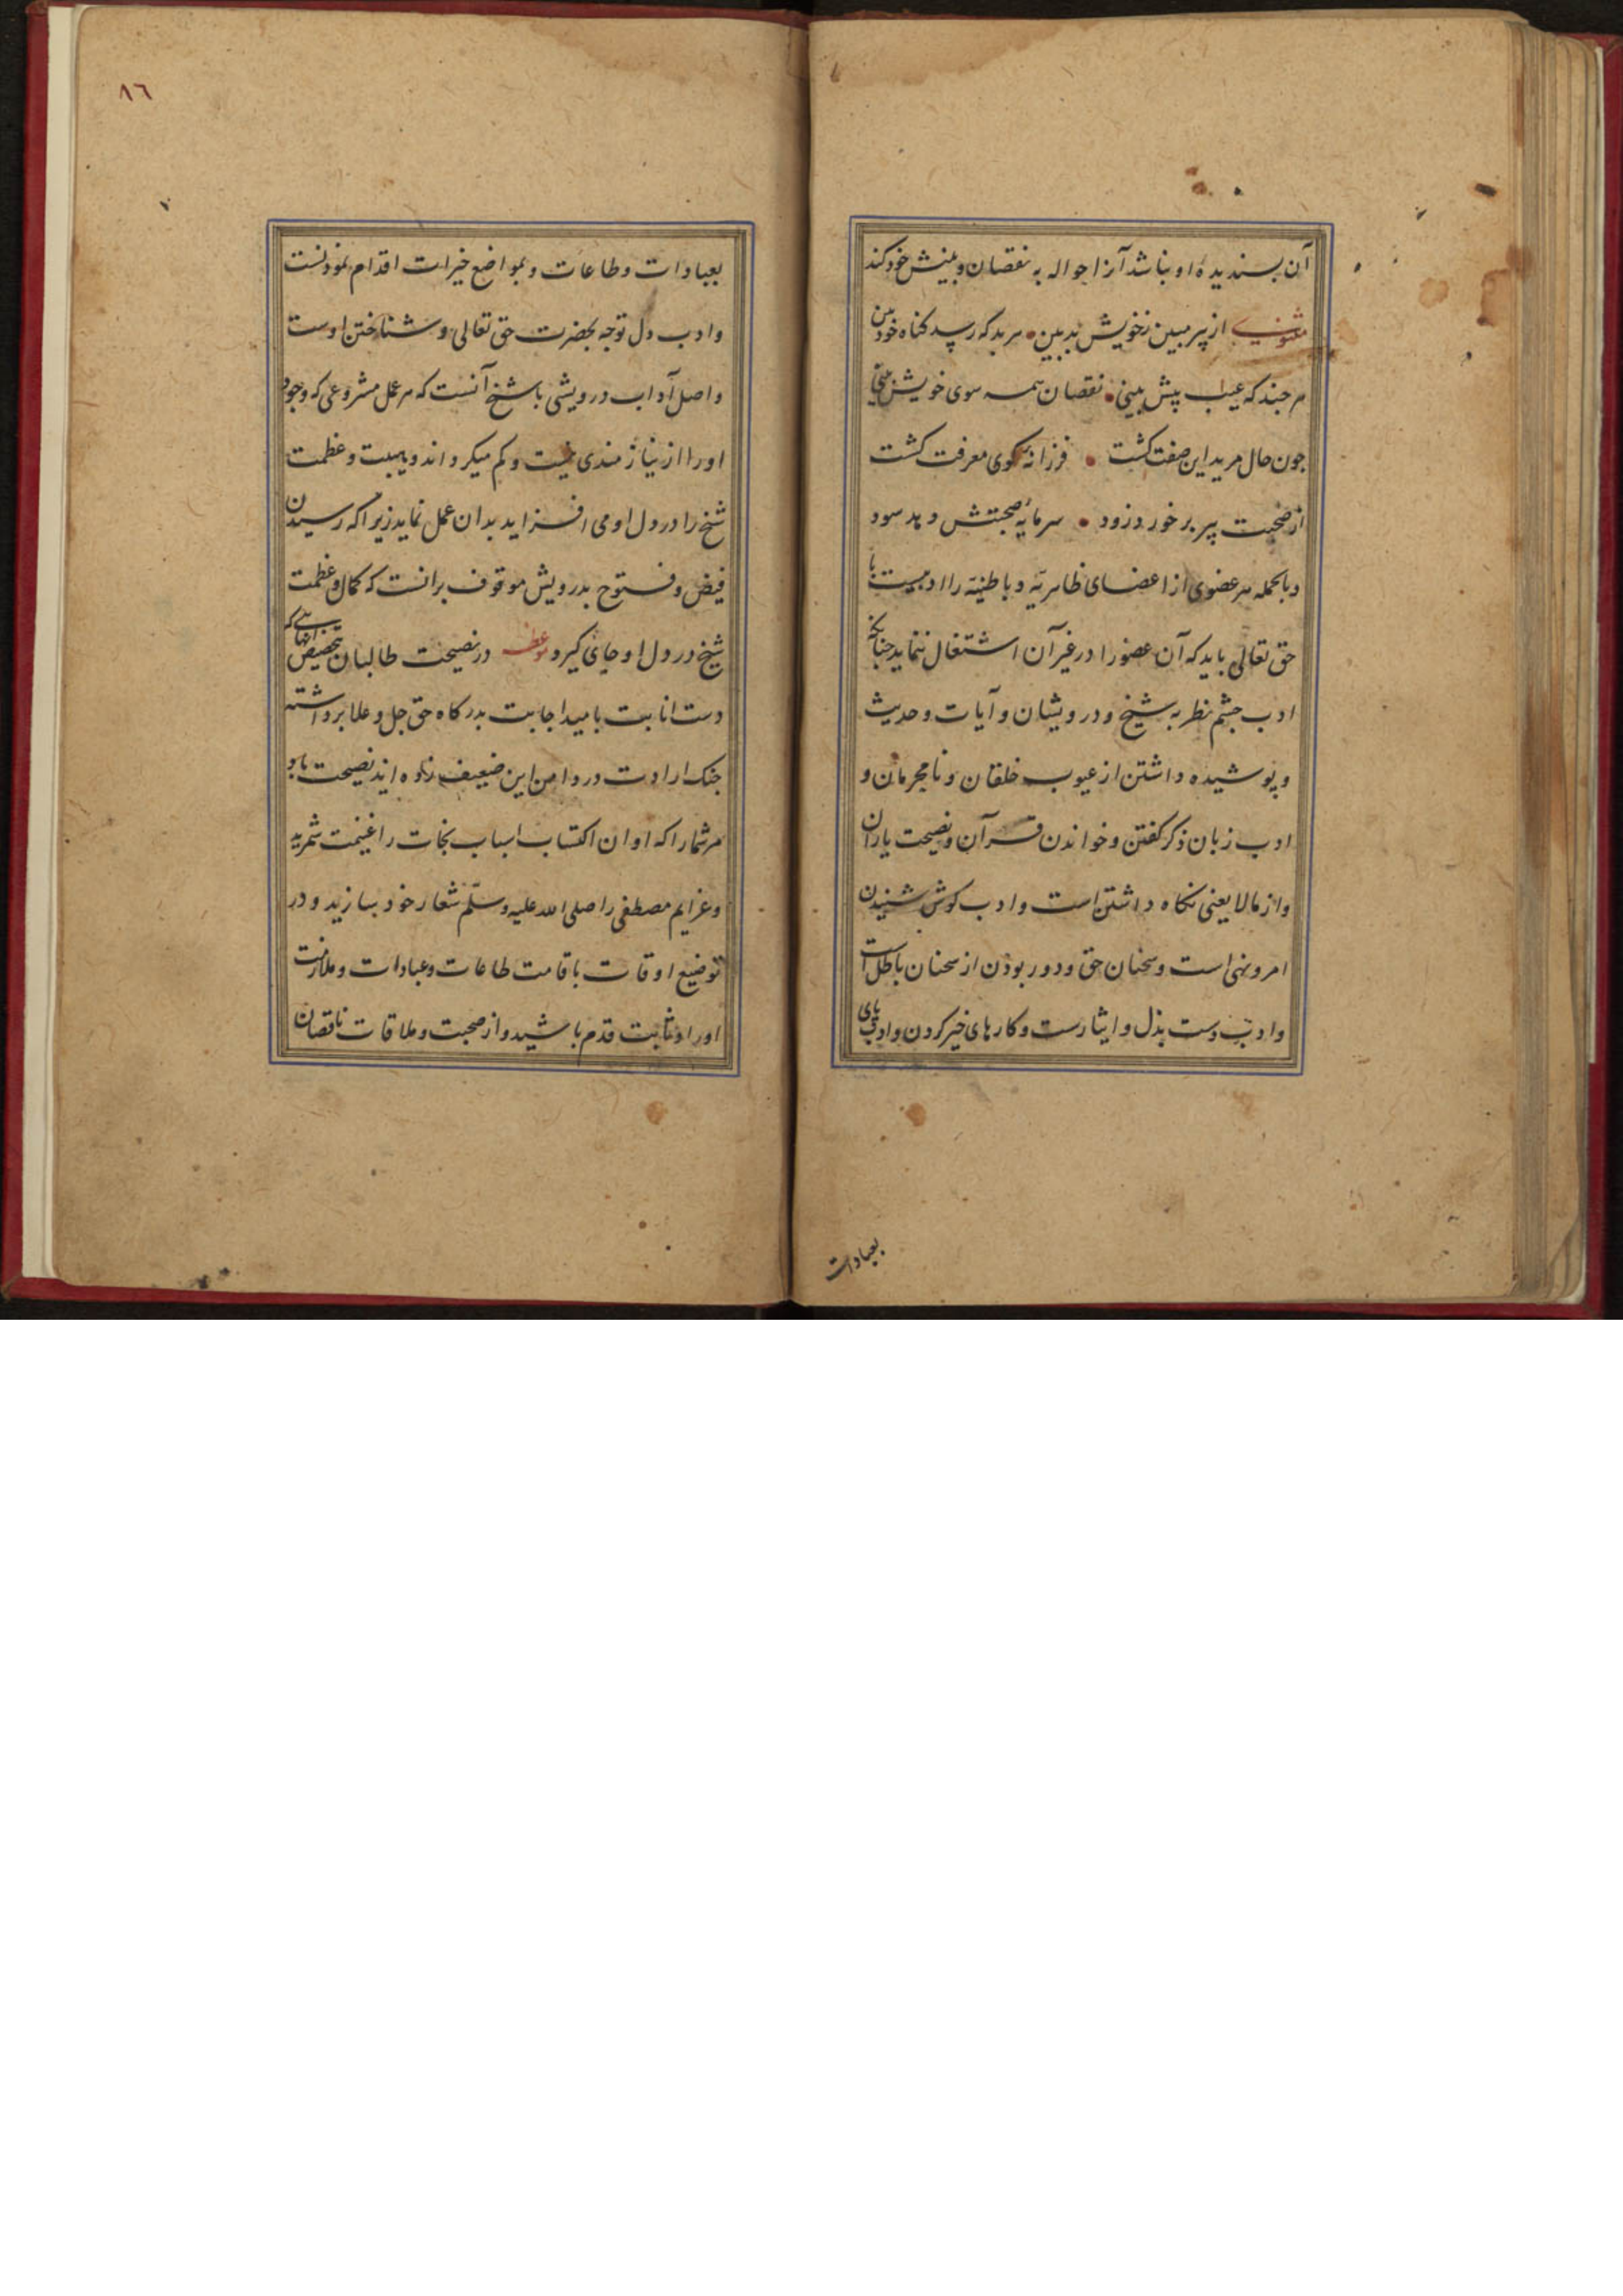 آن بسندیدهٔ او نباشد آنرا حواله به نقصان و بینش خود کند
مثنوی از پیر مبین زخویش بد بین • هر بد که رسد کناه خود بین
هر جند که عیب پیش بینی • نقصان همه سوی خویش بینی
جون حال مرید این صفت کشت • فرزانهٔ کوی معرفت کشت
از صحبت پیر بر خورد زود • سرمایهٔ صحبتش دهد سود
و بالجمله هر عضوی از اعضای ظاهریه و باطنیه را ادبیست با
حق تعالی باید که آن عضو را در غیر آن اشتغال ننماید جنانکه
ادب جشم نظر به شیخ و درویشان و آیات و حدیث
و پوشیده داشتن از عیوب خلقان و نامحرمان و
ادب زبان ذکر کفتن و خواندن قرآن و نصیحت یاران
و از مالا یعنی نکاه داشتن است و ادب کوش شنیدن
امر و نهی است و سخنان حق و دور بودن از سخنان باطل است
و ادب دست بذل و ایثارست و کارهای خیر کردن و ادب پای
بعبادات
٨٦
بعبادات و طاعات و بمواضع خیرات اقدام نمودنست
و ادب دل توجه بحضرت حق تعالی و شناختن اوست
و اصل آداب درویشی با شیخ آنست که هر عمل مشروعی که وجود
او را از نیازمندی نیست و کم میکرداند و هیبت و عظمت
شیخ را در دل او می افزاید بدان عمل نماید زیرا که رسیدن
فیض و فتوح بدرویش موقوف برانست که کمال و عظمت
شیخ در دل او جای کیرد موعظه در نصیحت طالبان بتخصیص انهایی که
دست انابت بامید اجابت بدرکاه حق جل و علا برداشته
جنک ارادت در دامن این ضعیف زده اند نصیحت باد
مر شما را که اوان اکتساب اسباب نجات را غنیمت شمرید
و عزایم مصطفی را صلی الله علیه وسلّم شعار خود سازید و در
توضیع اوقات باقامت طاعات و عبادات و ملازمت
اوراد ثابت قدم باشید و از صحبت و ملاقات ناقصان